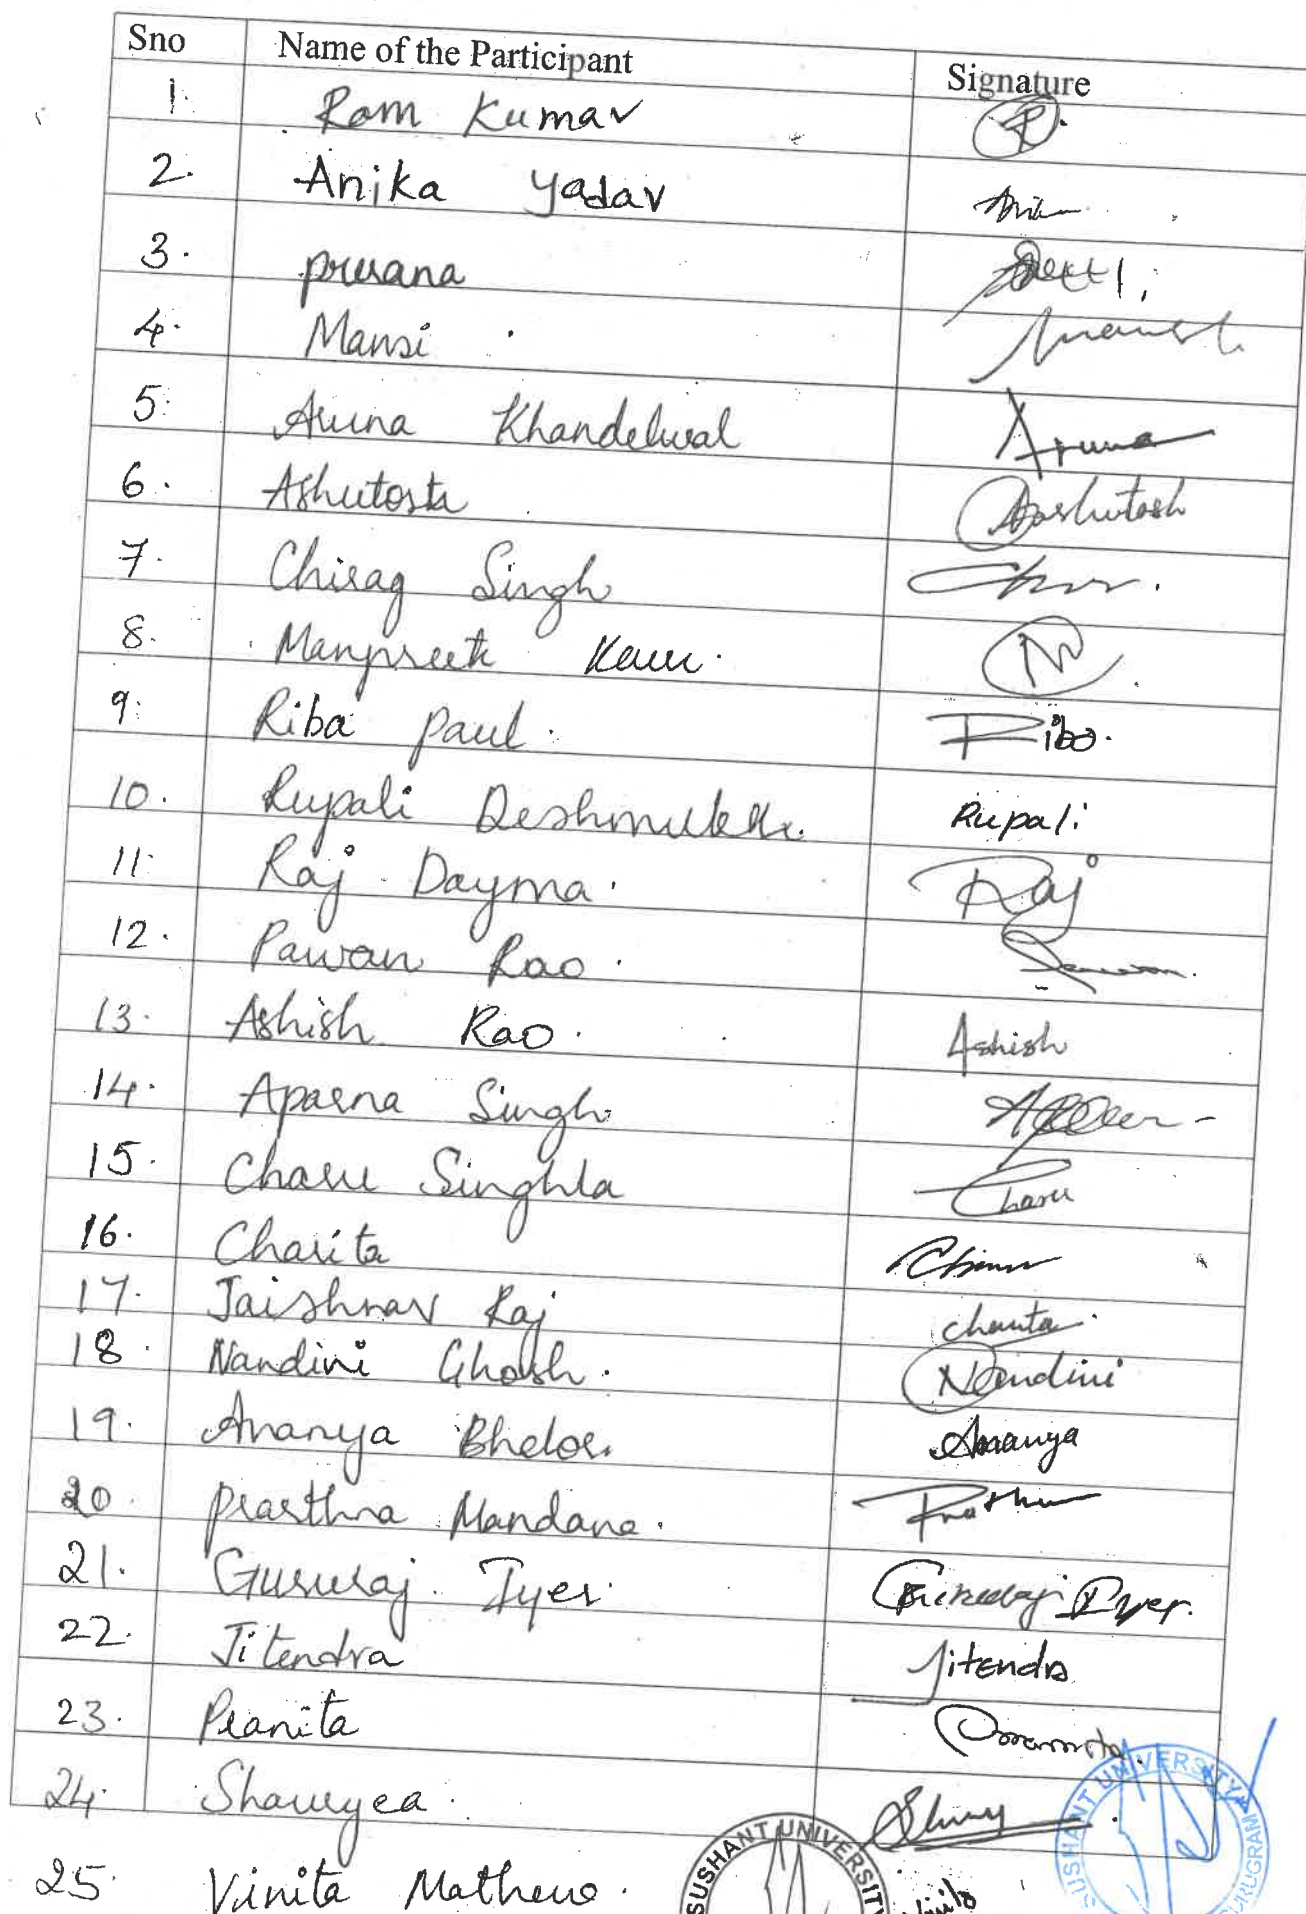 Sno Name of the Participant Signature
1. Ram Kumar
2. Anika Yadav
3. prerana
4. Mansi
5. Aruna Khandelwal Aruna
6. Ashutosh Aashutosh
7. Chirag Singh
8. Manpreet Kaur.
9. Riba Paul. Riba.
10. Rupali Deshmukh. Rupali
11. Raj Dayma. Raj
12. Pawan Rao.
13. Ashish Rao. Ashish
14. Aparna Singh
15. Charu Singhla Charu
16. Charita
17. Jaishnav Raj Charita
18. Nandini Ghosh. Nandini
19. Ananya Ananya
20. Prarthna Mandana.
21. Gururaj Iyer Gururaj Iyer.
22. Jitendra Jitendra
23. Pranita
24. Shaurya
25. Vinita Mathew.
SUSHANT UNIVERSITY
SUSHANT UNIVERSITY GURUGRAM